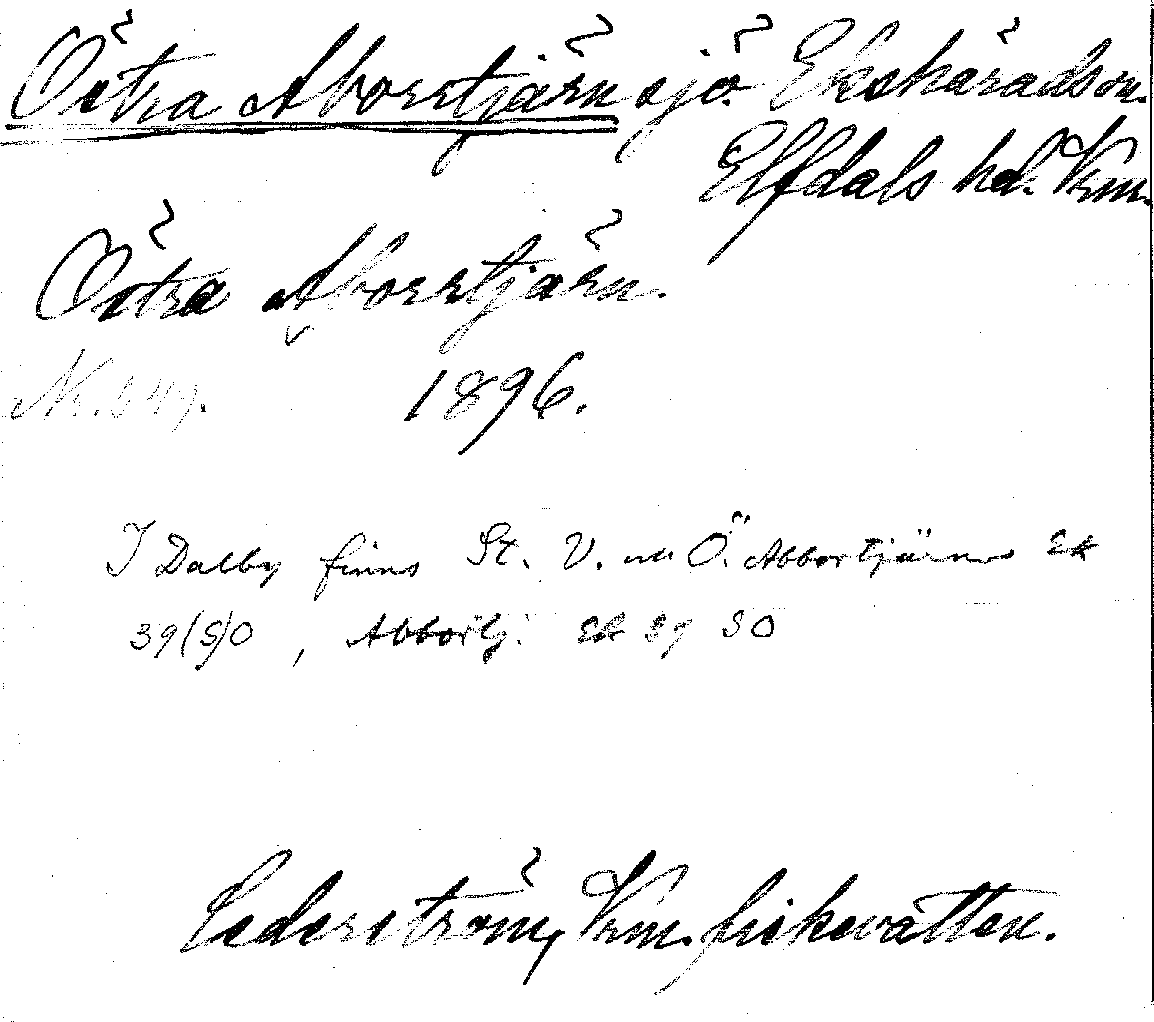 Östra Aborrtjärn sjö. Ekshärads sn.
Elfdals hd. Vrm.
Östra Aborrtjärn.
Nr. 547. 1896.
I Dalby finns St. V. o Ö. Abbortjärn Ek
39(S)O, Abbortj. Ek 39 SO
Cederström, Vrm. fiskevatten.